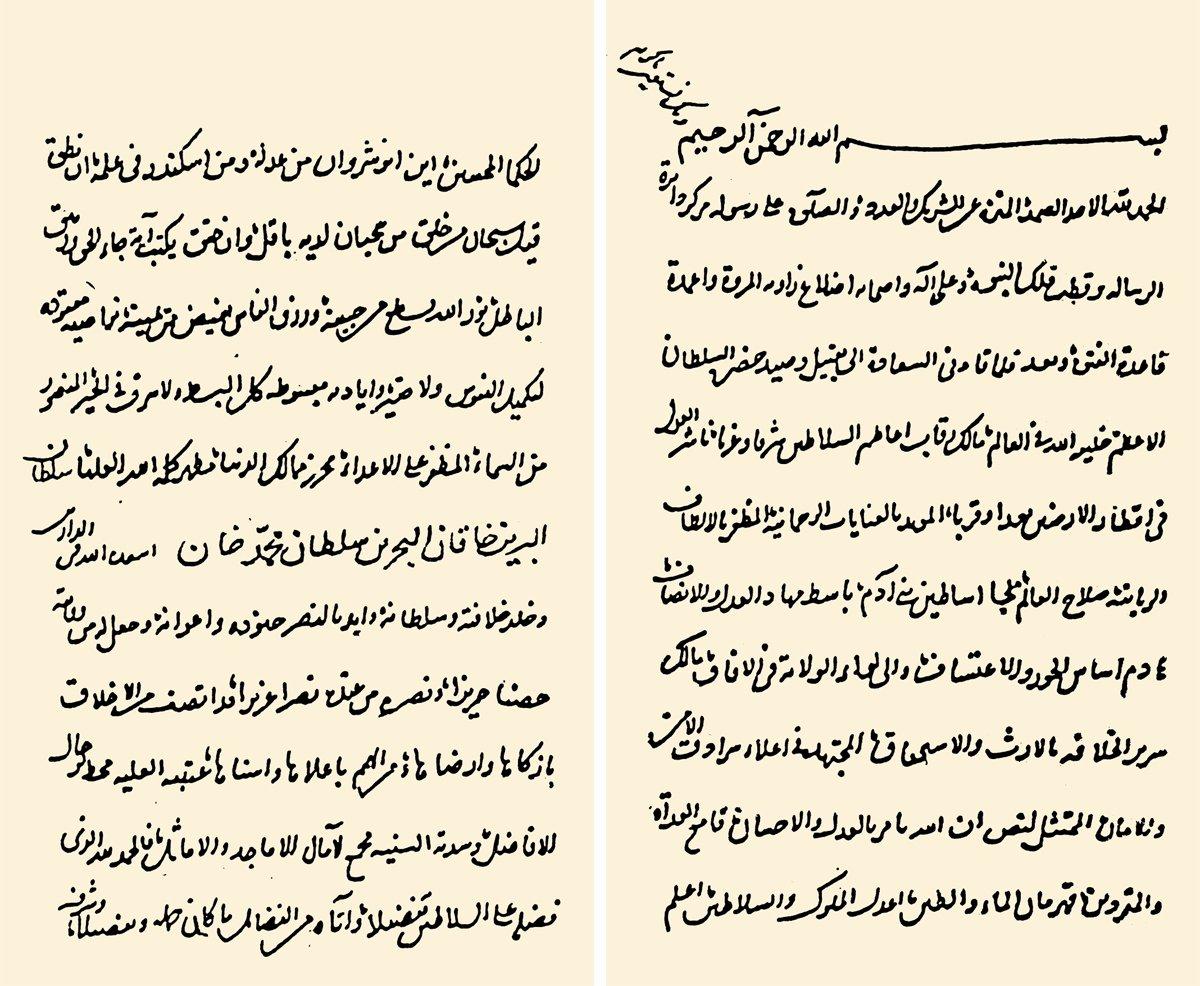 بسم الله الرحمن الرحيم
الحمد لله الاحد الصمد المنزه عن الشريك والعدد والصلوة على رسوله مركز دائرة
الرسالة وقطب فلك النبوة وعلى آله واصحابه اضلاع زاوية المروة واعمدة
قاعدة الفتوة وبعد فلما قادنى السعادة الى تقبيل وصيد حضرة السلطان
الاعظم خليفة الله فى العالم مالك رقاب اعاظم السلاطين شرقا وغربا ناشر العدل
فى اقطار الارضين بعدا وقربا المويد بالعنايات الرحمانية المظفر بالالطاف
الربانية صلاح العالم ملجأ اساطين بنى آدم باسط مهاد العدل والانصاف
هادم اساس الجور والاعتساف والى لواء الولاية فى الافاق مالك
سرير الخلافة بالارث والاستحقاق المجتهد فى اعلاء سرادقات الامن
والامان الممتثل لنص ان الله يامر بالعدل والاحسان قامع العداة
والمتمردين قهرمان الماء والطين اعدل الملوك والسلاطين اعلم
الحكما المحسنين اين انوشروان من عدله ومن اسكندر فى علمه ان نطق
قيل سبحان من خلق من سحبان لديه باقل وان حقق يكتب آية جاء الحق وزهق
الباطل نور الله يسطع من جبينه ورزق الناس يفيض من يمينه نواصيه معقودة
لتكميل النفوس واياديه مبسوطة كل البسط ولا سرف فى الخير المنصور
من السماء المظفر على الاعداء محرز ممالك الدنيا مظهر كلمة الله العليا سلطان
البرين خاقان البحرين سلطان محمد خان اسعده الله فى الدارين
وخلد خلافته وسلطانه وايد بالنصر جنوده واعوانه وجعل له من
حصنا حريزا ونصره من عنده نصرا عزيزا قد اتصف من الاخلاق
بازكاها وارضاها ومن الهمم باعلاها واسناها عتبته العلية محط رحال
الافاضل وسدته السنية مجمع آمال الاماجد والاماثل فالحمد لله الذى
فضله على السلاطين تفضيلا وآتاه من الفضائل ما كان جملة وتفصيلا